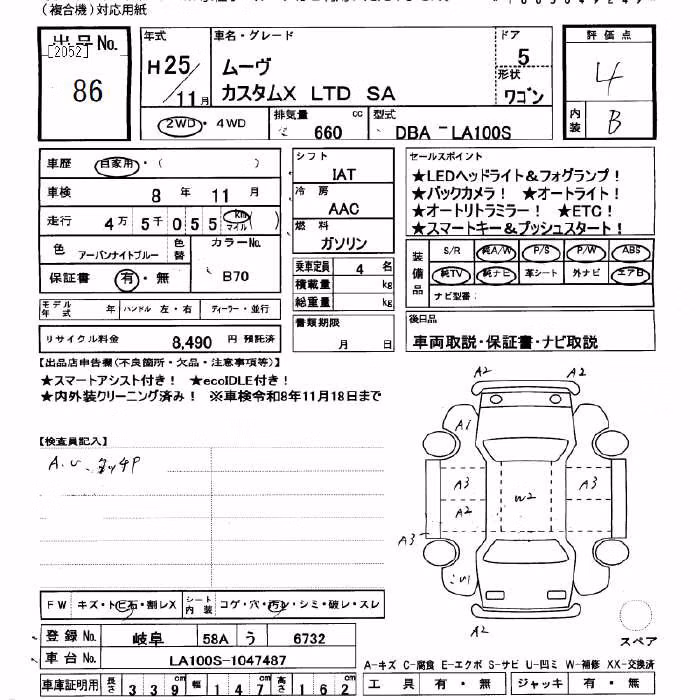 (複合機)対応用紙
出品No. [2052] 86
年式 H25/11月
車名・グレード ムーヴ カスタムX LTD SA
ドア 5 形状 ワゴン
評価点 4
内装 B
2WD・4WD
排気量 660 cc
型式 DBA -LA100S
車歴 自家用・( )
車検 8年 11月
走行 4万5千055 km マイル ( )
色 アーバンナイトブルー 色替 カラーNo. B70
保証書 有・無
モデル年式 年 ハンドル 左・右 ディーラー・並行
リサイクル料金 8,490 円 預託済
シフト IAT
冷房 AAC
燃料 ガソリン
乗車定員 4 名
積載量 kg
総重量 kg
書類期限 月 日
セールスポイント
★LEDヘッドライト&フォグランプ!
★バックカメラ! ★オートライト!
★オートリトラミラー! ★ETC!
★スマートキー&プッシュスタート!
装備品 S/R 純A/W P/S P/W ABS
純TV 純ナビ 革シート 外ナビ エアB
ナビ型番:
後日品
車両取説・保証書・ナビ取説
【出品店申告欄(不良箇所・欠品・注意事項等)】
★スマートアシスト付き! ★ecoIDLE付き!
★内外装クリーニング済み! ※車検令和8年11月18日まで
【検査員記入】
A.U. タッチP
A2 A2
A1
A3 A3
A2 W2
A3
U1
A2
スペア
FW キズ・トビ石・割レX シート内装 コゲ・穴・汚レ・シミ・破レ・スレ
登録No. 岐阜 58A う 6732
車台No. LA100S-1047487
車庫証明用 長さ 339cm 幅 147cm 高さ 162cm
A-キズ C-腐食 E-エクボ S-サビ U-凹ミ W-補修 XX-交換済
工具 有・無 ジャッキ 有・無